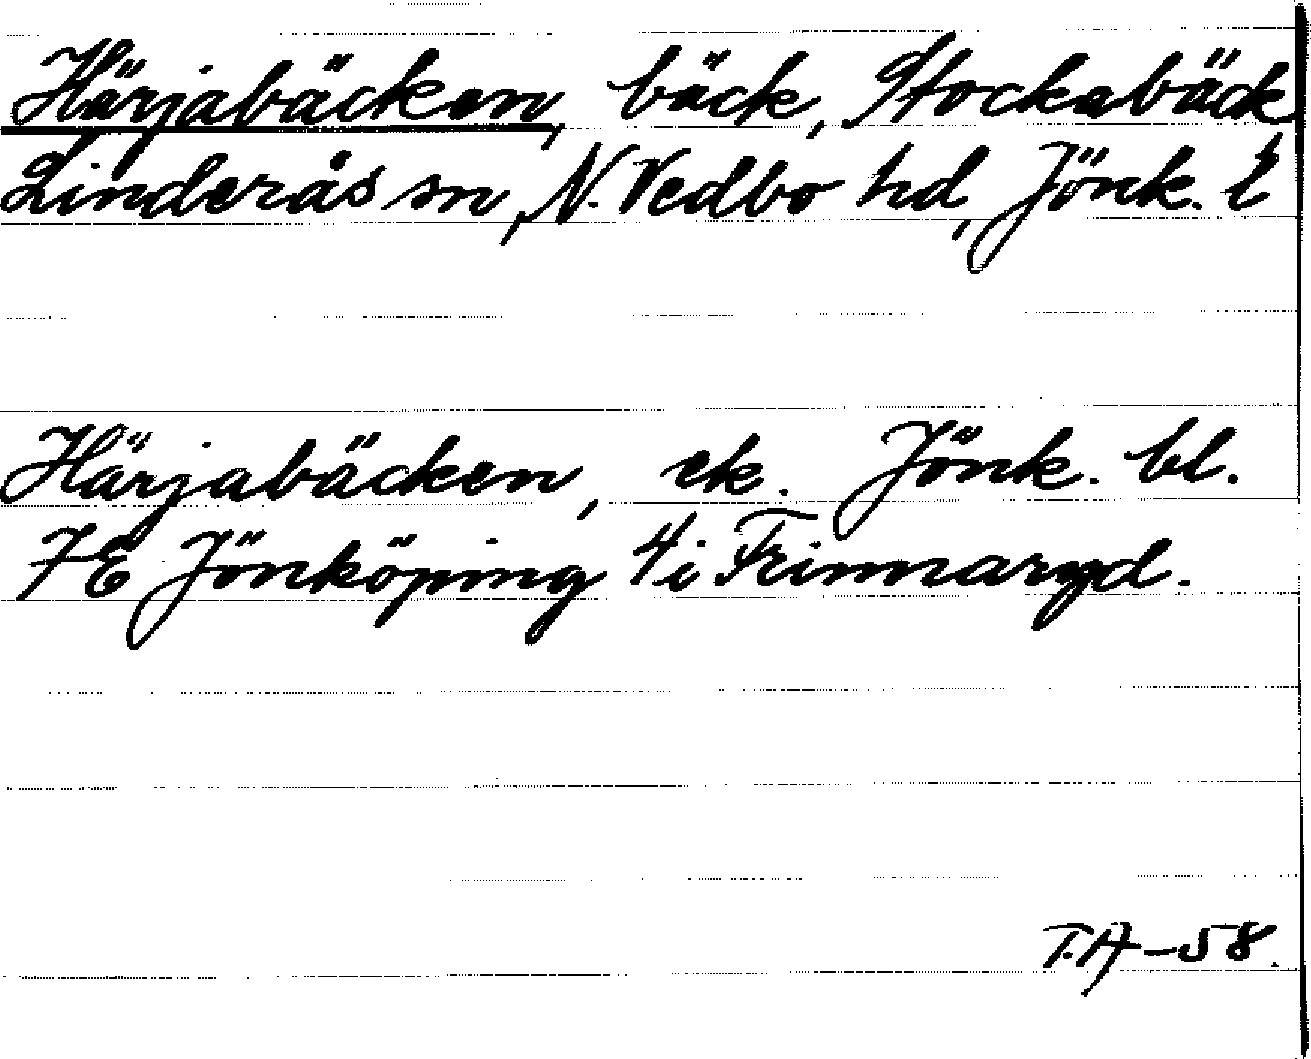 Härjabäcken, bäck, Stockabäck,
Linderås sn, N. Vedbo hd, Jönk. l
Härjabäcken, ek. Jönk. bl.
7E Jönköping 4i Frinnaryd.
T.A-58.